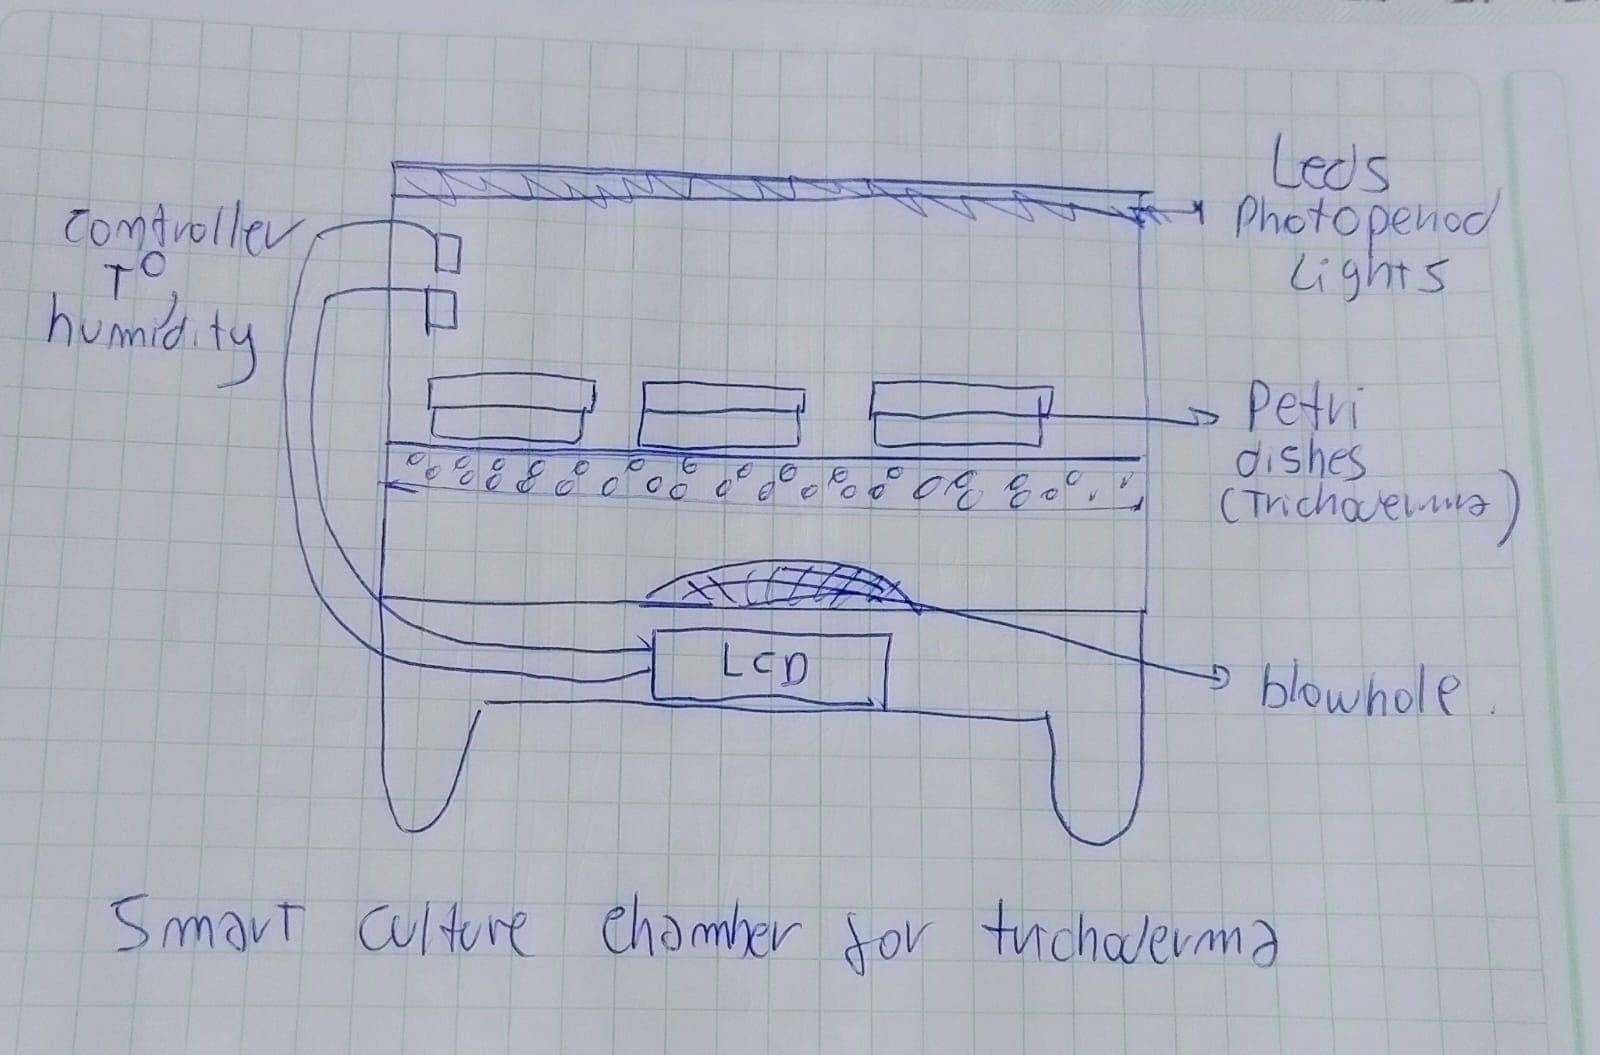 Leds
Photoperiod
Lights
Controller
T°,
humidity
Petri
dishes
(Trichoderma)
LCD
blowhole.
Smart culture chamber for trichoderma